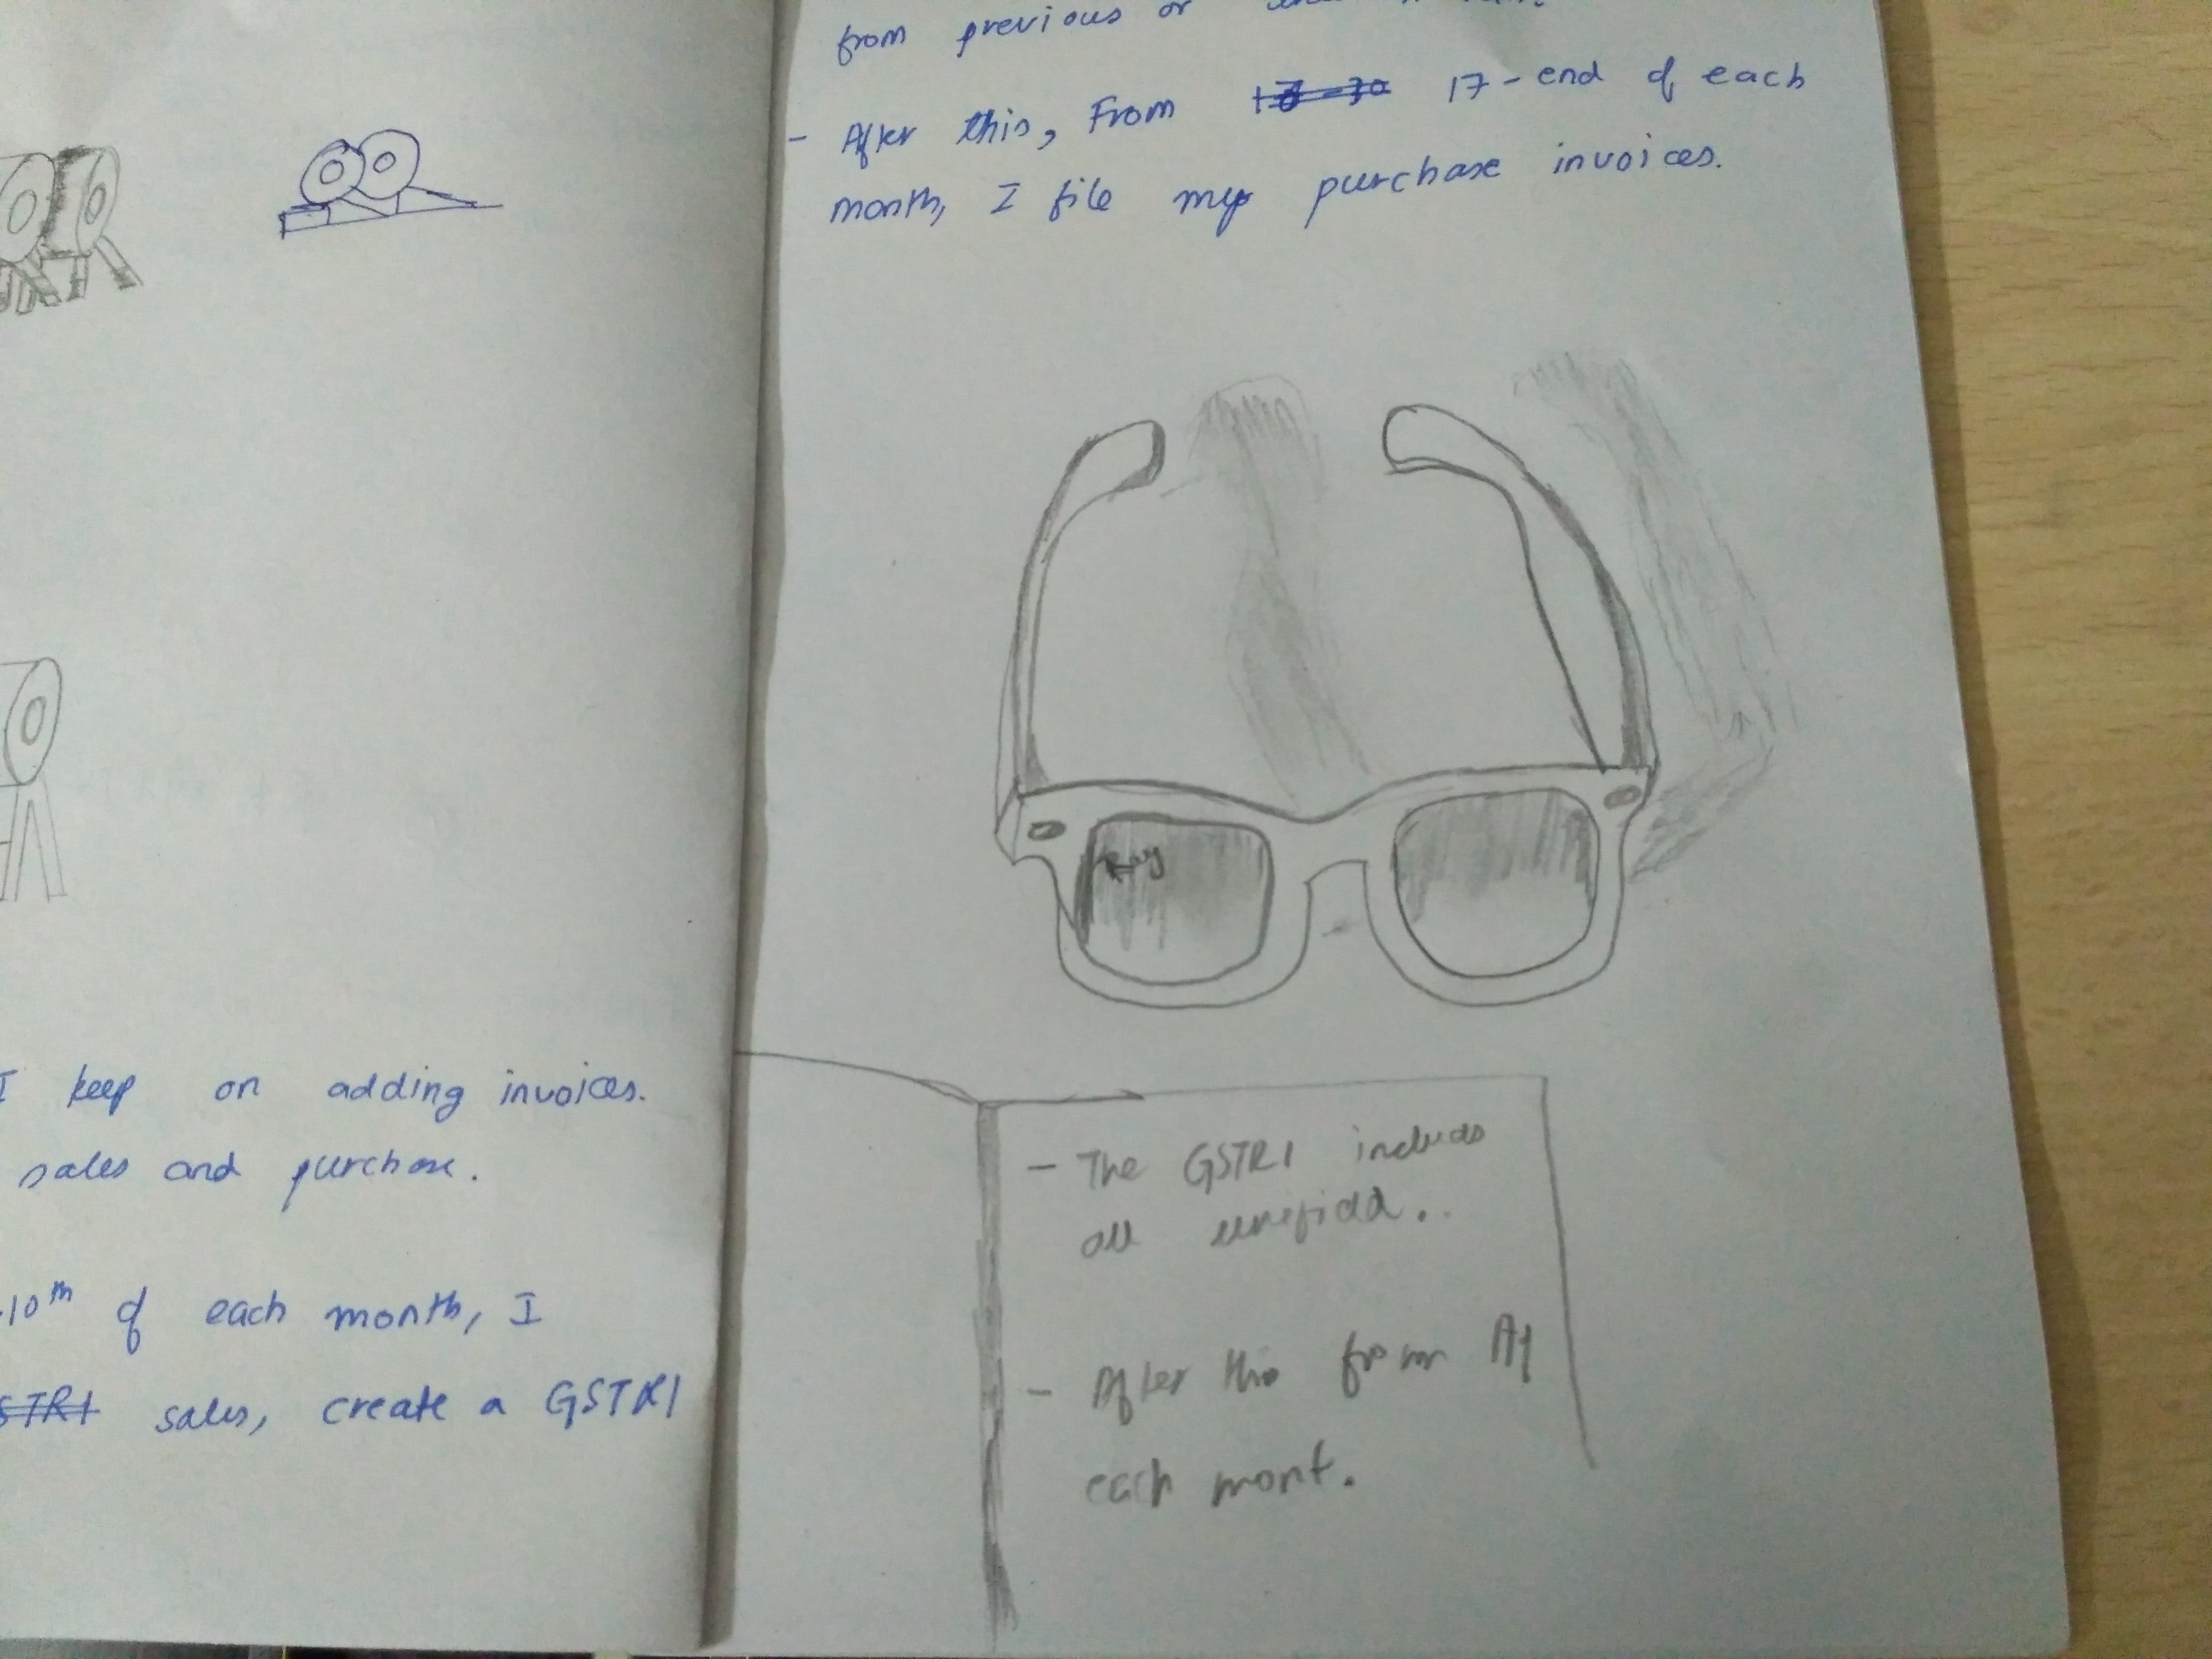 I keep on adding invoices.
sales and purchase.
10th of each month, I
GSTR1 sales, create a GSTR1
from previous or
- After this, From 17 - end of each
month, I file my purchase invoices.
Ray
- The GSTR1 includes
all
- After this from
each mont.